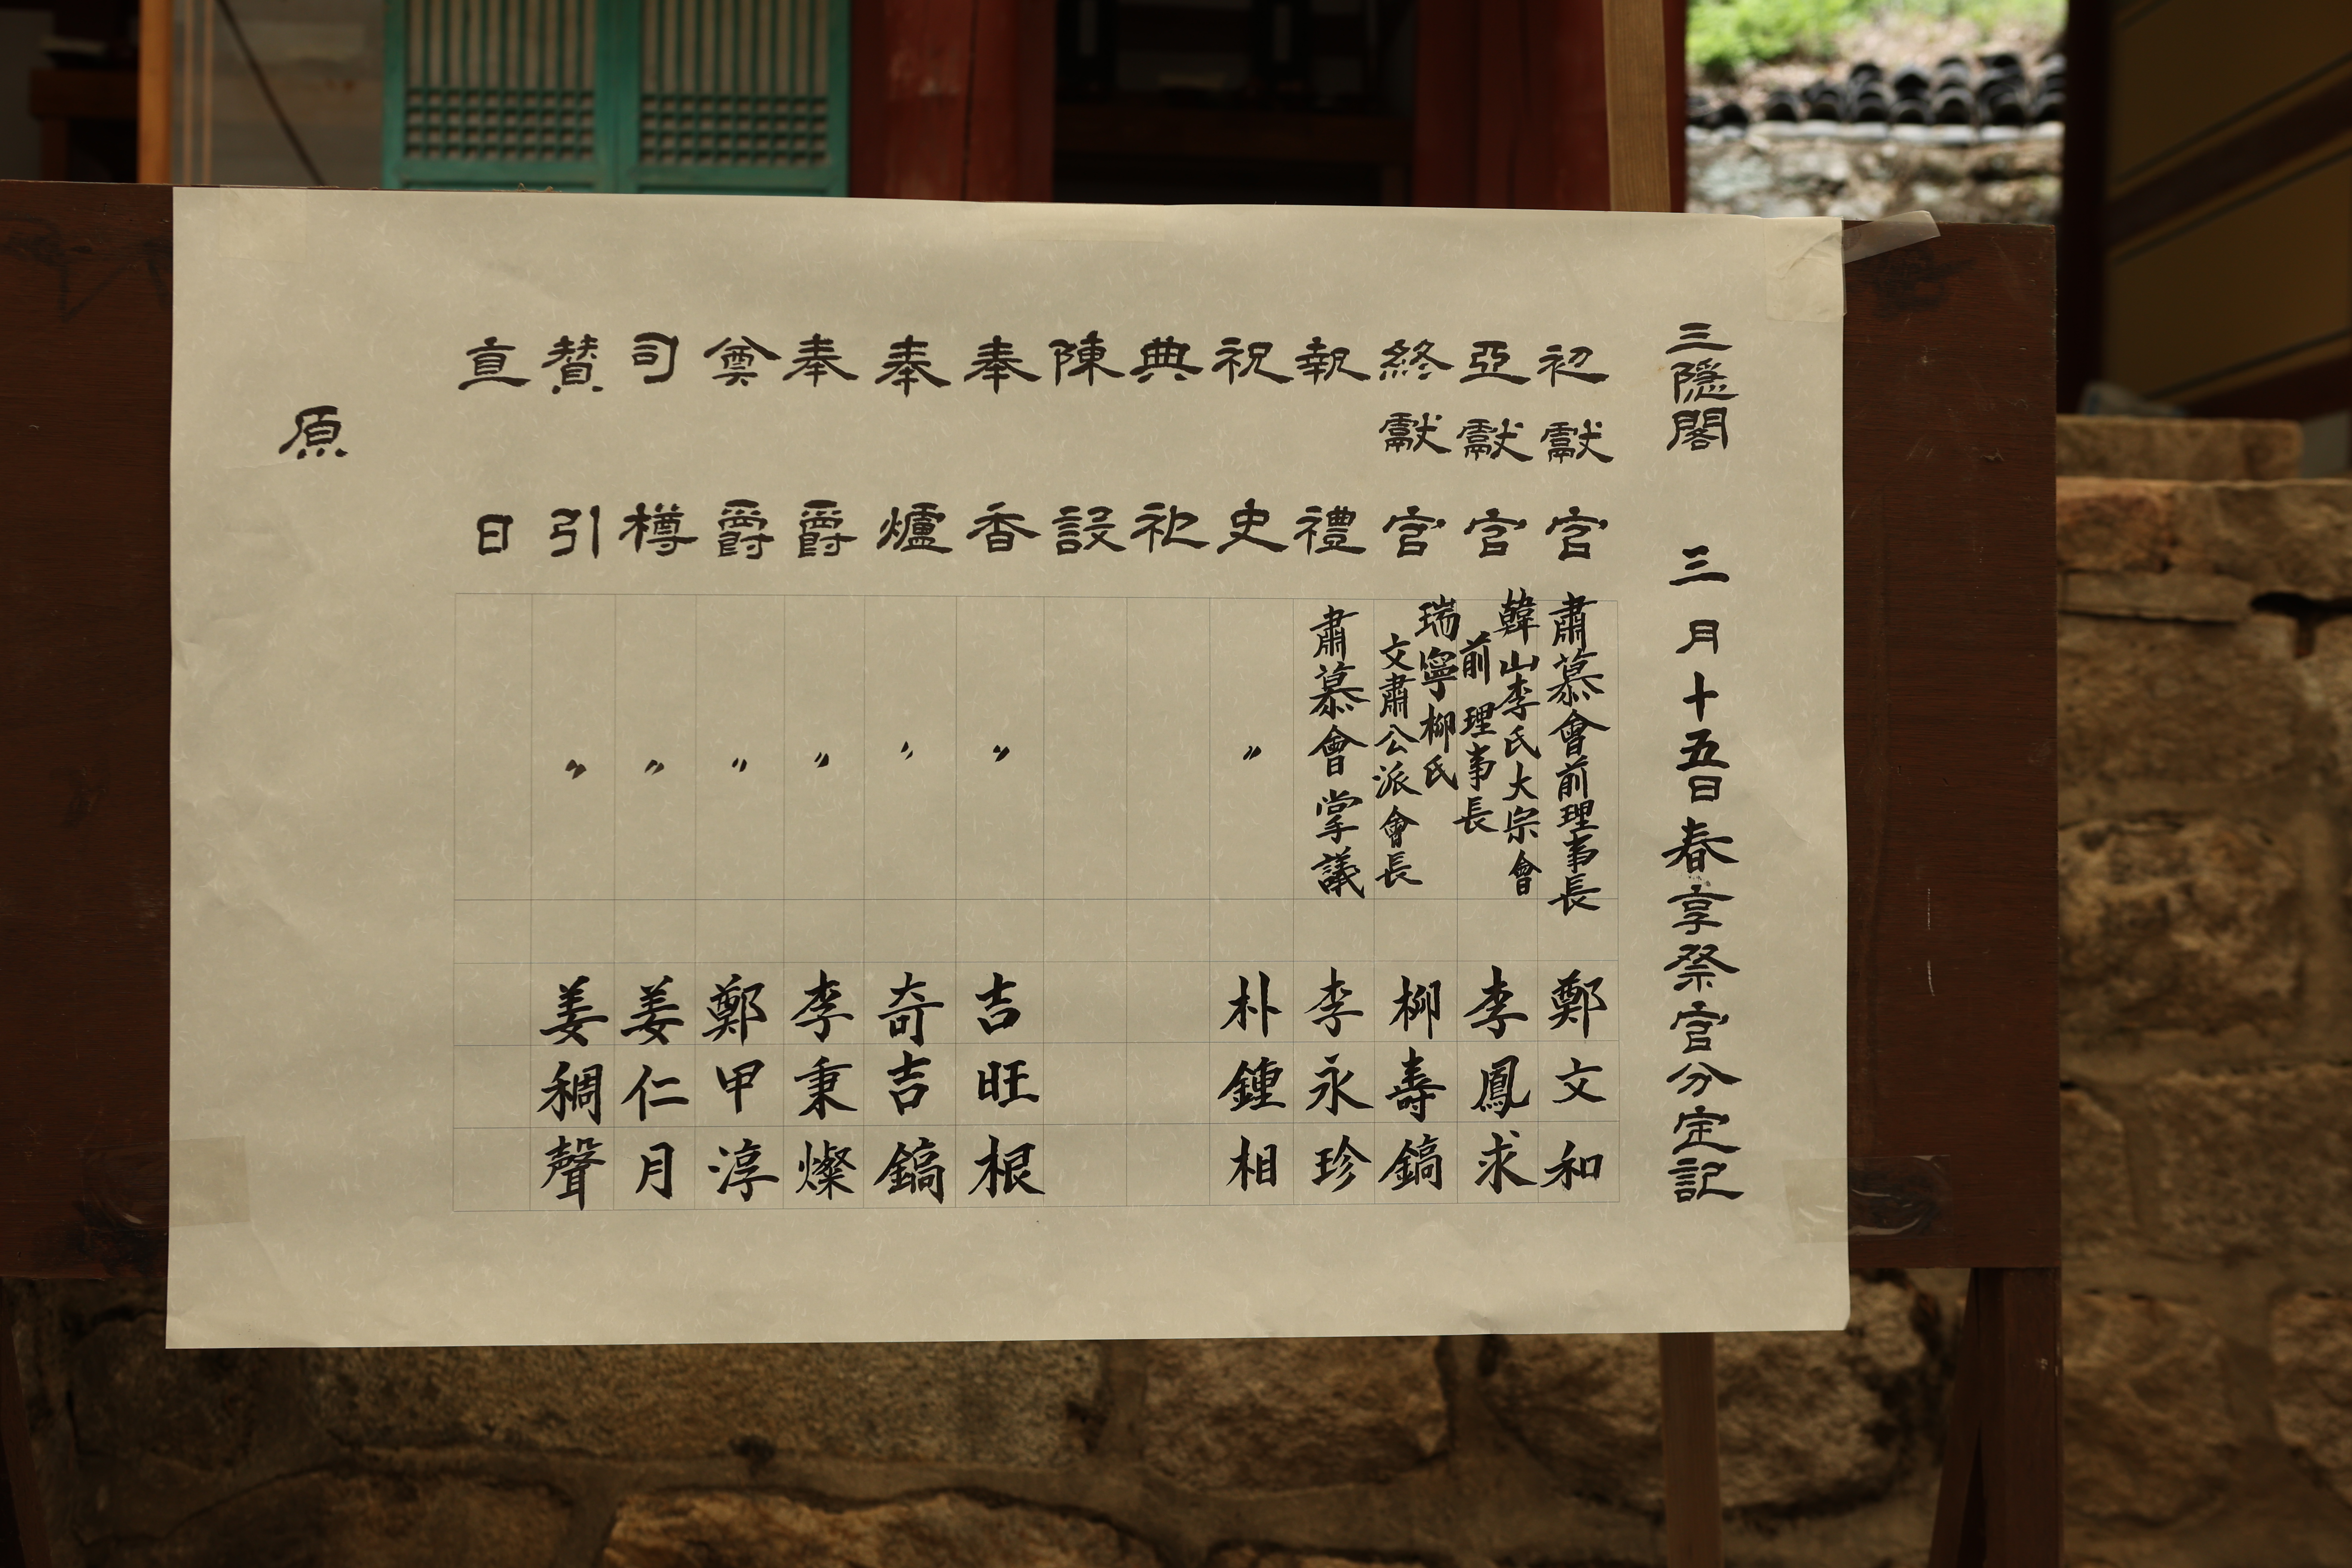 三隱閣 三月十五日春享祭官分定記
初獻官 肅慕會前理事長 鄭文和
亞獻官 韓山李氏大宗會 前理事長 李鳳求
終獻官 瑞寧柳氏 文肅公派會長 柳壽鎬
執禮 肅慕會掌議 李永珍
祝史 〃 朴鍾相
典祀
陳設
奉香 〃 吉旺根
奉爐 〃 奇吉鎬
奉爵 〃 李秉燦
奠爵 〃 鄭甲淳
司樽 〃 姜仁月
贊引 〃 姜稠聲
直日
原